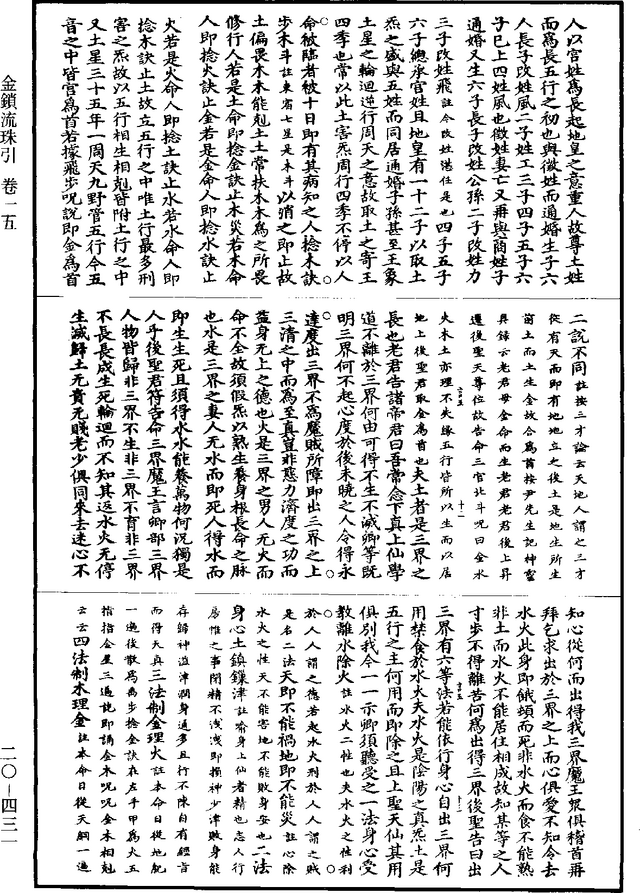 人以宮姓為長起地皇之意重人故尊土姓
而為長五行之初也與徵姓而通婚生子六
人長子改姓風二子姓工三子四子五子六
子已上四姓風也徵姓妻亡又再與商姓子
通婚又生六子長子改姓公孫二子改姓力
三子改姓飛註今改姓湛任是也四子五子
六子總承宮姓且地皇有一十二子以取土
炁之盛與五姓而同居通婚子孫甚至王象
土星之輪迴逆行周天之意故取土之寄王
四季也常以此土害炁周行四季不停以人
命被臨者被十日即有其病知之人捻木訣
步木斗註東宿七星是木斗以消之即止故
土偏畏木木能剋土土常扶木木為之所畏
修行人若是土命即捻金訣止木災若木命
人即捻火訣止金若是金命人即捻水訣止
火若是火命人即捻土訣止水若水命人即
捻木訣止土故立五行之中唯土行最多刑
害之炁故以五行相生相剋皆附土行之中
又土星三十五年一周天九野管五行令五
音之中皆宮為首若據飛步呪說即金為首
二說不同註按三才論云天地人謂之三才
從有天而即有地地立之後土是地生所生
萬土而土生金故合為首按尹先生記神靈
與錄云老君母金命而生老君老君後上昇
還後聖天尊位故告命三官北斗呪曰金水
火木土亦理不失緣五行皆所以生而以居
地上後聖君取金為首也夫土者是三界之
長也老君告諸帝君曰吾常念下真上仙學
道不離於三界何由可得不生不滅卿等既
明三界何不起心度於後末曉之人令得永
達度出三界不為魔賊所障即出三界之上
三清之中而為至真豈非慈力濟度之功而
益身无上之德也火是三界之男人无火而
命不全故須假炁以熟生養身根長命之脉
也水是三界之妻人无水而即死人得水而
即生生死且須得水水能養萬物何況獨是
人乎後聖君符告命三界魔王言卿部三界
人物皆歸非三界不生非三界不育非三界
不長長成生死輪迴而不知其返水火无停
生滅歸土无貴无賤老少俱同來去迷心不
知心從何而出得我三界魔王眾俱稽首再
拜乞求出於三界之上而心俱愛不知令去
水火此身即餓頓而死非水火而食不能熟
非土而水火不能居住相成故知其等之人
寸步不得離苦何為出得三界後聖告曰出
三界有六等法若能依行身心自出三界何
用禁食於水火夫水火是陰陽之真炁土是
五行之主何用而即除之且上聖天仙其用
俱別我今一一示卿須聽受之一法身心受
教離水除火註水火二性也夫水火之性利
於人人謂之德若起水火刑於人人謂之賊
是名二法天即不能禍地即不能災註心除
水火之性天不能害地不能敗身安也二法
身心土鎮鏁津註喻身上仙者精也忌人行
房惟之事閉精不洩洩即損神少津敗身能
存歸神溢津潤身通多且行不陳自有經言
而得天真三法制金理火註本命日從地紀
一過後散為禹步捻金訣在左手甲為火五
指指金星三遍訖即誦金水呪呪金木相剋
云云四法制木理金註本命日從天綱一過
金鎖流珠引 卷一五
二〇—四三一